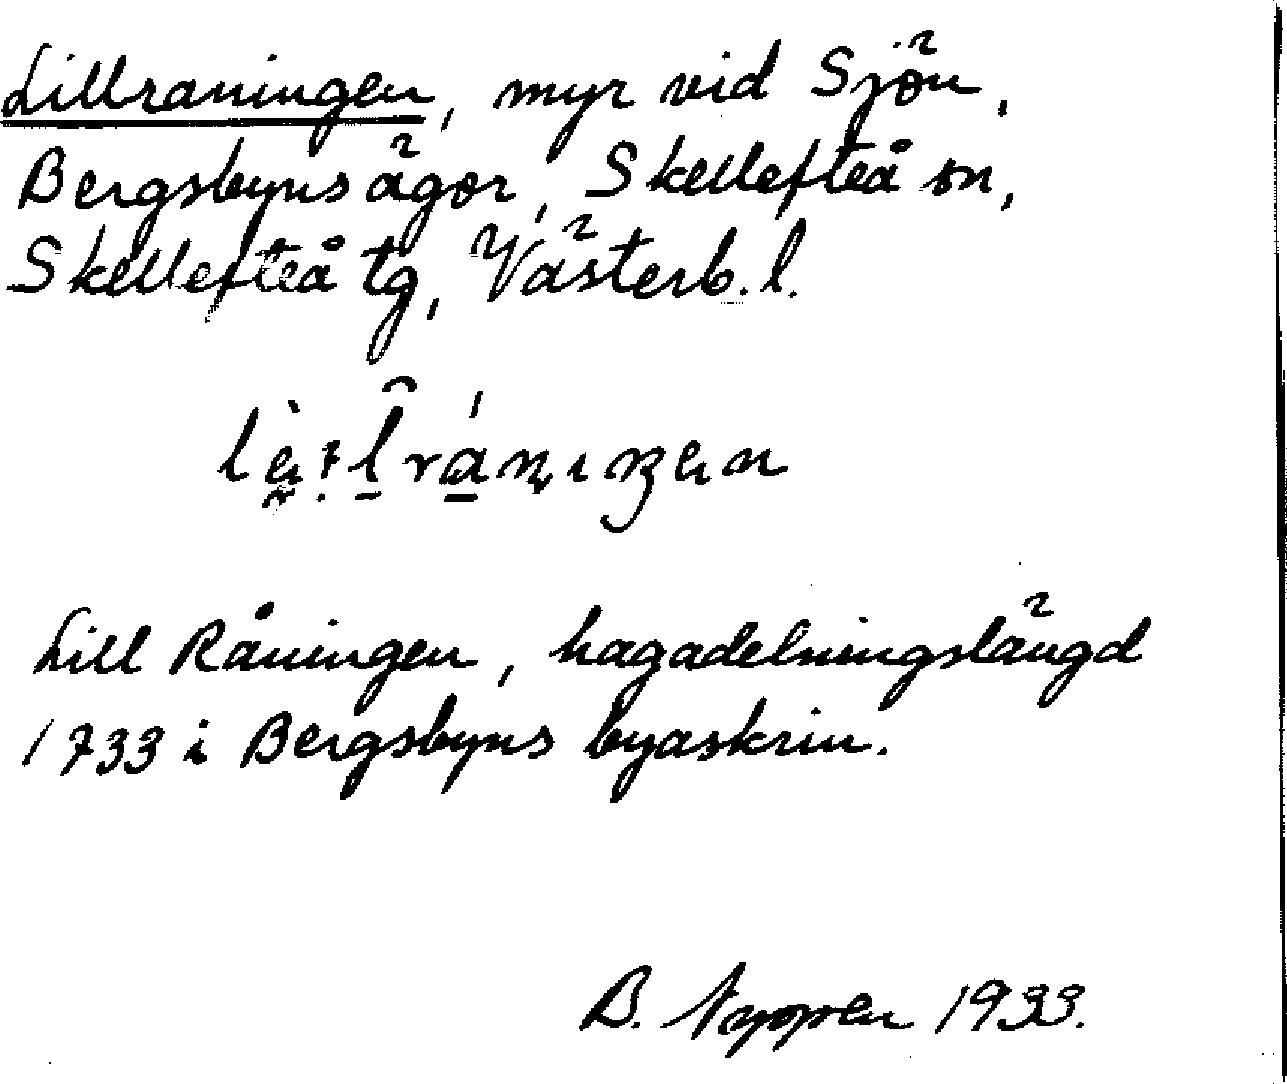 Lillraningen, myr vid Sjön,
Bergsbyns ägor, Skellefteå sn,
Skellefteå tg, Västerb. l.
Lill Råningen, hagadelningslängd
1733 i Bergsbyns byaskrin.
B. 1933.